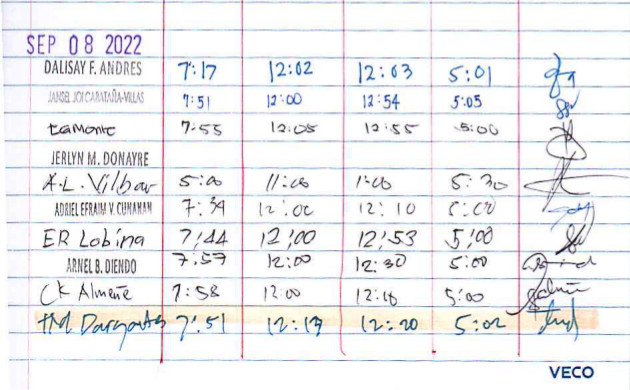 SEP 08 2022
DALISAY F. ANDRES 7:17 12:02 12:03 5:01
JANSEL JOI CABATAÑA-VILLAS 7:51 12:00 12:54 5:05
tamonte 7:55 12:05 12:55 5:00
JERLYN M. DONAYRE
A.L. Vilbar 5:00 11:00 1:00 5:30
ADRIEL EFRAIM V. CUNANAN 7:39 12:00 12:10
ER Lobina 7:44 12:00 12:53 5:00
ARNEL B. DIENDO 7:57 12:00 12:30 5:00
CK Almeñe 7:58 12:00 12:18 5:00
7:51 12:19 12:20 5:02
VECO